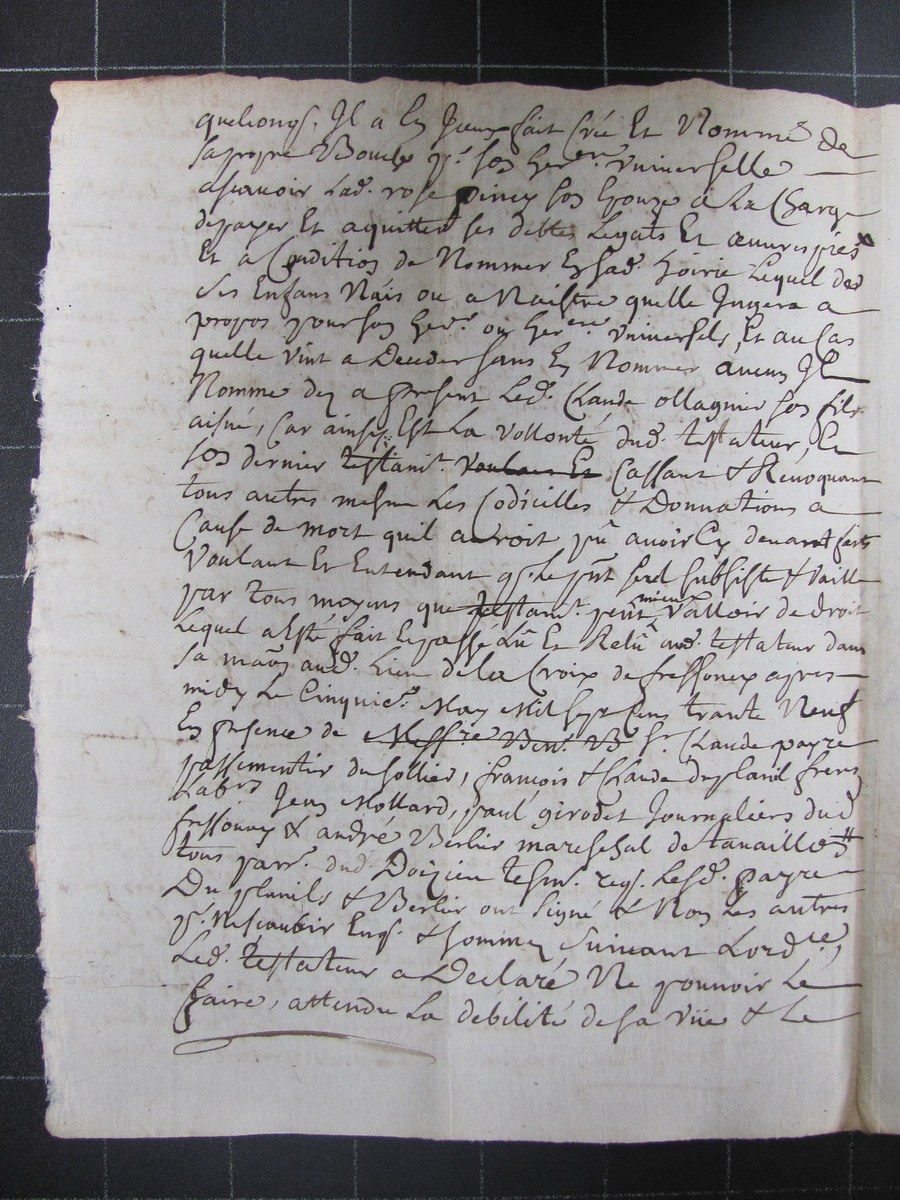 quelconqs, Il a En Iceux fait Créé Et Nommé de
sa propre Bouche pr. son herere. Universelle
ascavoir lad. rose piney son Epouze à La Charge
de payer Et aquitter ses debtes Legats Et œuvres pies
Et a Condition de Nommer En sad. hoirie Lequel des
Ses Enfans Nais ou a Naistre quelle Jugera a
propos pour son herr. ou herere. Universels, Et au Cas
quelle vint a Deceder sans En Nommer aucun Il
Nomme dez a present Led. Claude ollagnier son fils
aisné, Car ainsy Est La vollonté dud. testateur, Et
son dernier testamt. Voulant Et Cassant & Revoquant
tous autres mesme Les Codicilles & Donnations a
Cause de mort quil auroit pû avoir Cy devant faits
Voulant Et Entendant qe. le pnt seul subsiste & vaille
par tous moyens que testamt. peut mieux valloir de droit
Lequel a Esté fait Et passé Lû Et Relû aud. testateur dans
sa maon aud. Lieu de la Croix de fressoney apres
midy Le Cinquie. May Mil sept Cens trante Neuf
En presence de Messire Bent. B Sr. Claude payre
passementier du sollier, francois & Claude duplanil freres
Labrs Jean Mollard, paul girodet Journaliers dud
fressoney & andré Berlier mareschal de tavailles
tous parr. dud. Doizieu tesm. reqs. Lesd. payre
Du planils & Berlier ont signé & Non Les autres
pr. Ne scavoir Enqs. & sommez suivant Lordce,
Led. testateur a Declaré Ne pouvoir Le
faire, attendu La debilité de sa vüe & Le